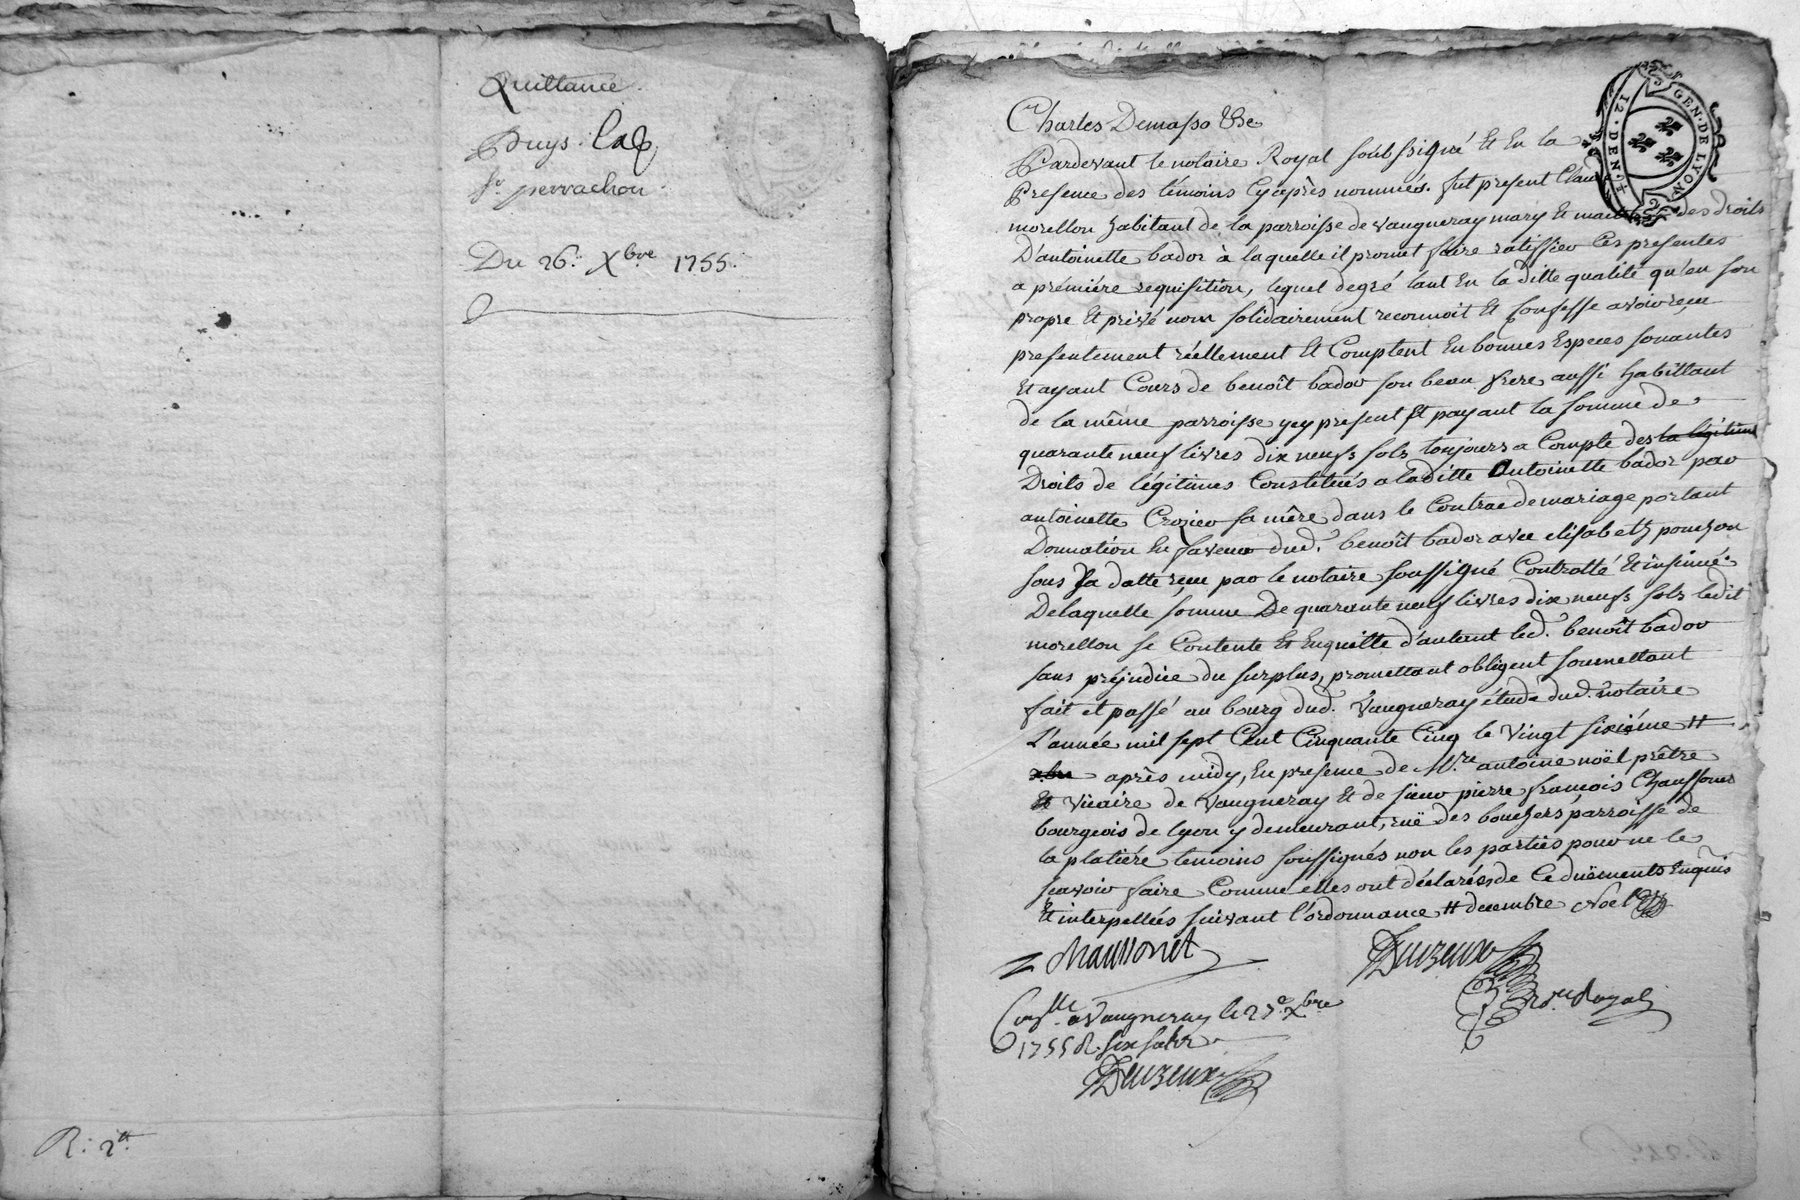 Quittance
Puys. Lad
Sr. perrachon
Du 26e. Xbre 1755.
R: 2tt
GEN. DE LYON
12. DEN. S
Charles Demasso &c
Pardevant le notaire Royal soubssigné Et En la
Presence des témoins Cyaprès nommés. fut present Claude
morellon habitant de la parroisse de vaugneray mary Et maitre des droits
D'antoinette bador à laquelle il promet faire ratiffier Ces presentes
a première requisition, lequel degré tant En la ditte qualité qu'en son
propre Et privé nom solidairement reconnoit Et Confesse avoir reçu
presentement réellement Et Comptent En bonnes Especes sonantes
Et ayant Cours de benoît bador son beau frere aussi habittant
de la même parroisse ycy present Et payant la somme de
quarante neuf livres dix neufs sols toujours a Compte des la légitime
Droits de légitimes Constitués a laditte Antoinette bador par
antoinette Crozier sa mère dans le Contrac de mariage portant
Donnation En faveur dud. benoît bador avec elisabeth ponchon
sous sa datte reçu par le notaire soussigné Controllé Et insinué
De laquelle somme De quarante neuf livres dix neufs sols ledit
morellon se Contente Et Enquitte d'autant led. benoît bador
sans préjudice du surplus, promettant obligent soumettant
fait et passé au bourg dud. Vaugneray étude dud. notaire
L'année mil sept Cent Cinquante Cinq le Vingt sixiéme #
xbre après midy, En presence de Mre. antoine noël prêtre
Et Vicaire de Vaugneray Et de sieur pierre françois Chaussonet
bourgeois de lyon y demeurant, ruë des bouchers parroisse de
la platiére temoins soussignés non les parties pour ne le
scavoir faire Comme elles ont déclarés, de Ce duëments Enquis
Et interpellés suivant l'ordonnance # decembre Noël
Chaussonet
Deuzeux
no.re Royal
Con.lle a Vaugneray le 27e Xbre
1755 R. six sols
Deuzeux